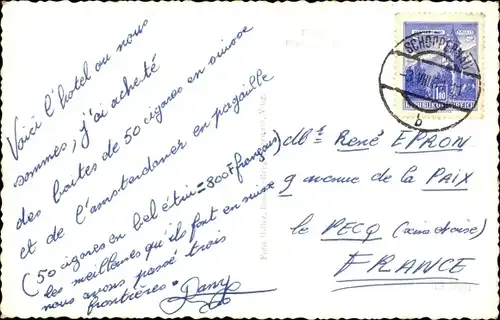 Voici l'hotel ou nous
sommes, j'ai acheté
des boites de 50 cigares en suisse
et de l'amsterdamer en pagaille
(50 cigares en bel étui = 800F français)
les meilleures qu'ils font en suisse
nous avons passé trois
frontières. Dany
SCHOPPERNAU
VIII
b
1.80
REPUBLIK ÖSTERREICH
René EPRON
9 avenue de la PAIX
le PECQ (seine et oise)
FRANCE